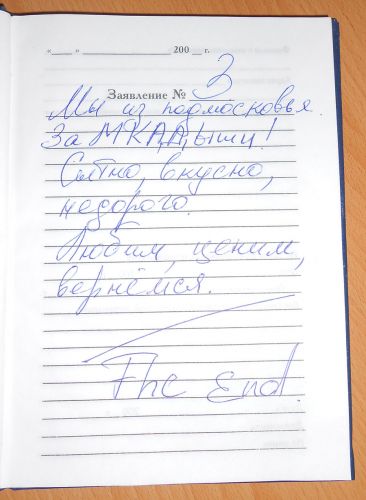 « ____ » ______________ 200 __ г.
Заявление № 3
Мы из подмосковья.
За МКАДыши!
Сытно, вкусно,
недорого.
Любим, ценим,
вернёмся.
The End.